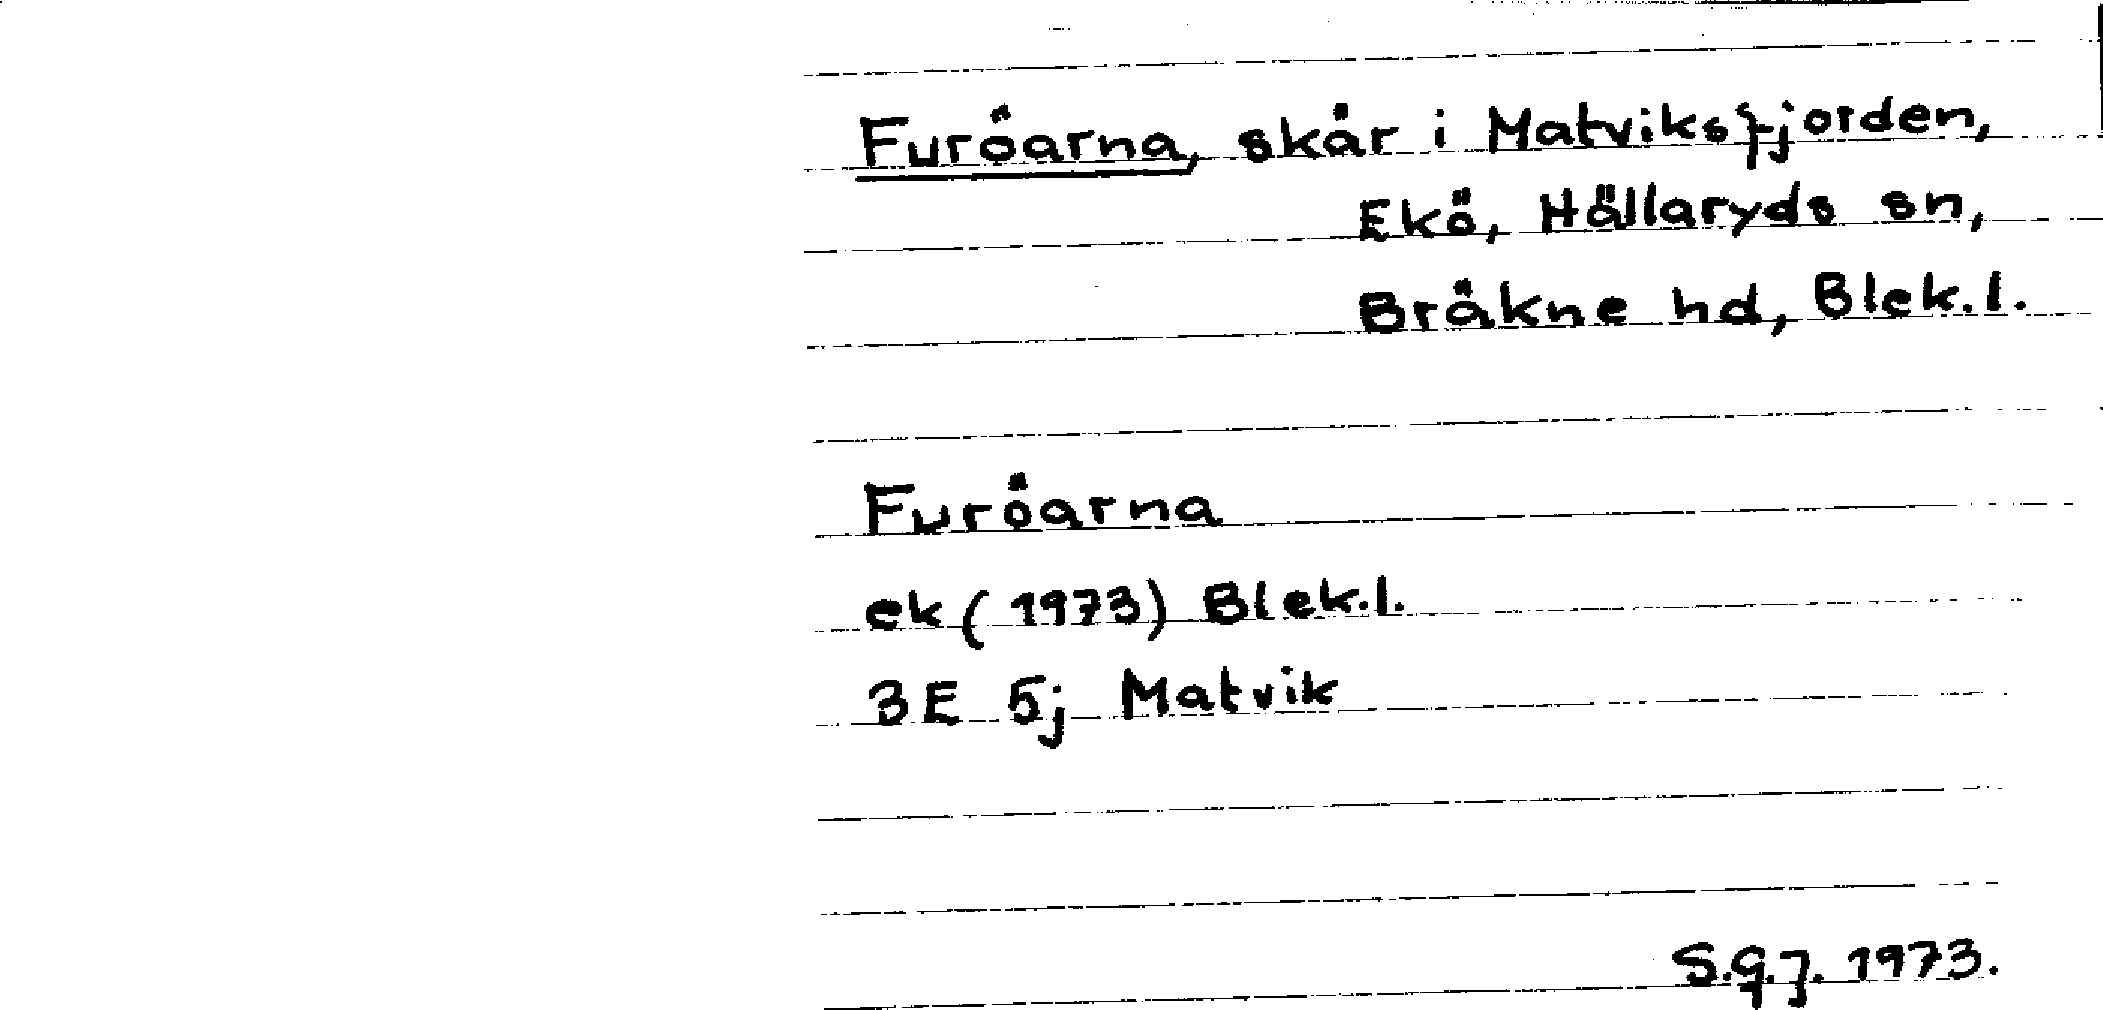 Furöarna, skär i Matviksfjorden,
Ekö, Hällaryds sn,
Bräkne hd, Blek.l.
Furöarna
ek (1973) Blek.l.
3E 5j Matvik
S.G.J. 1973.